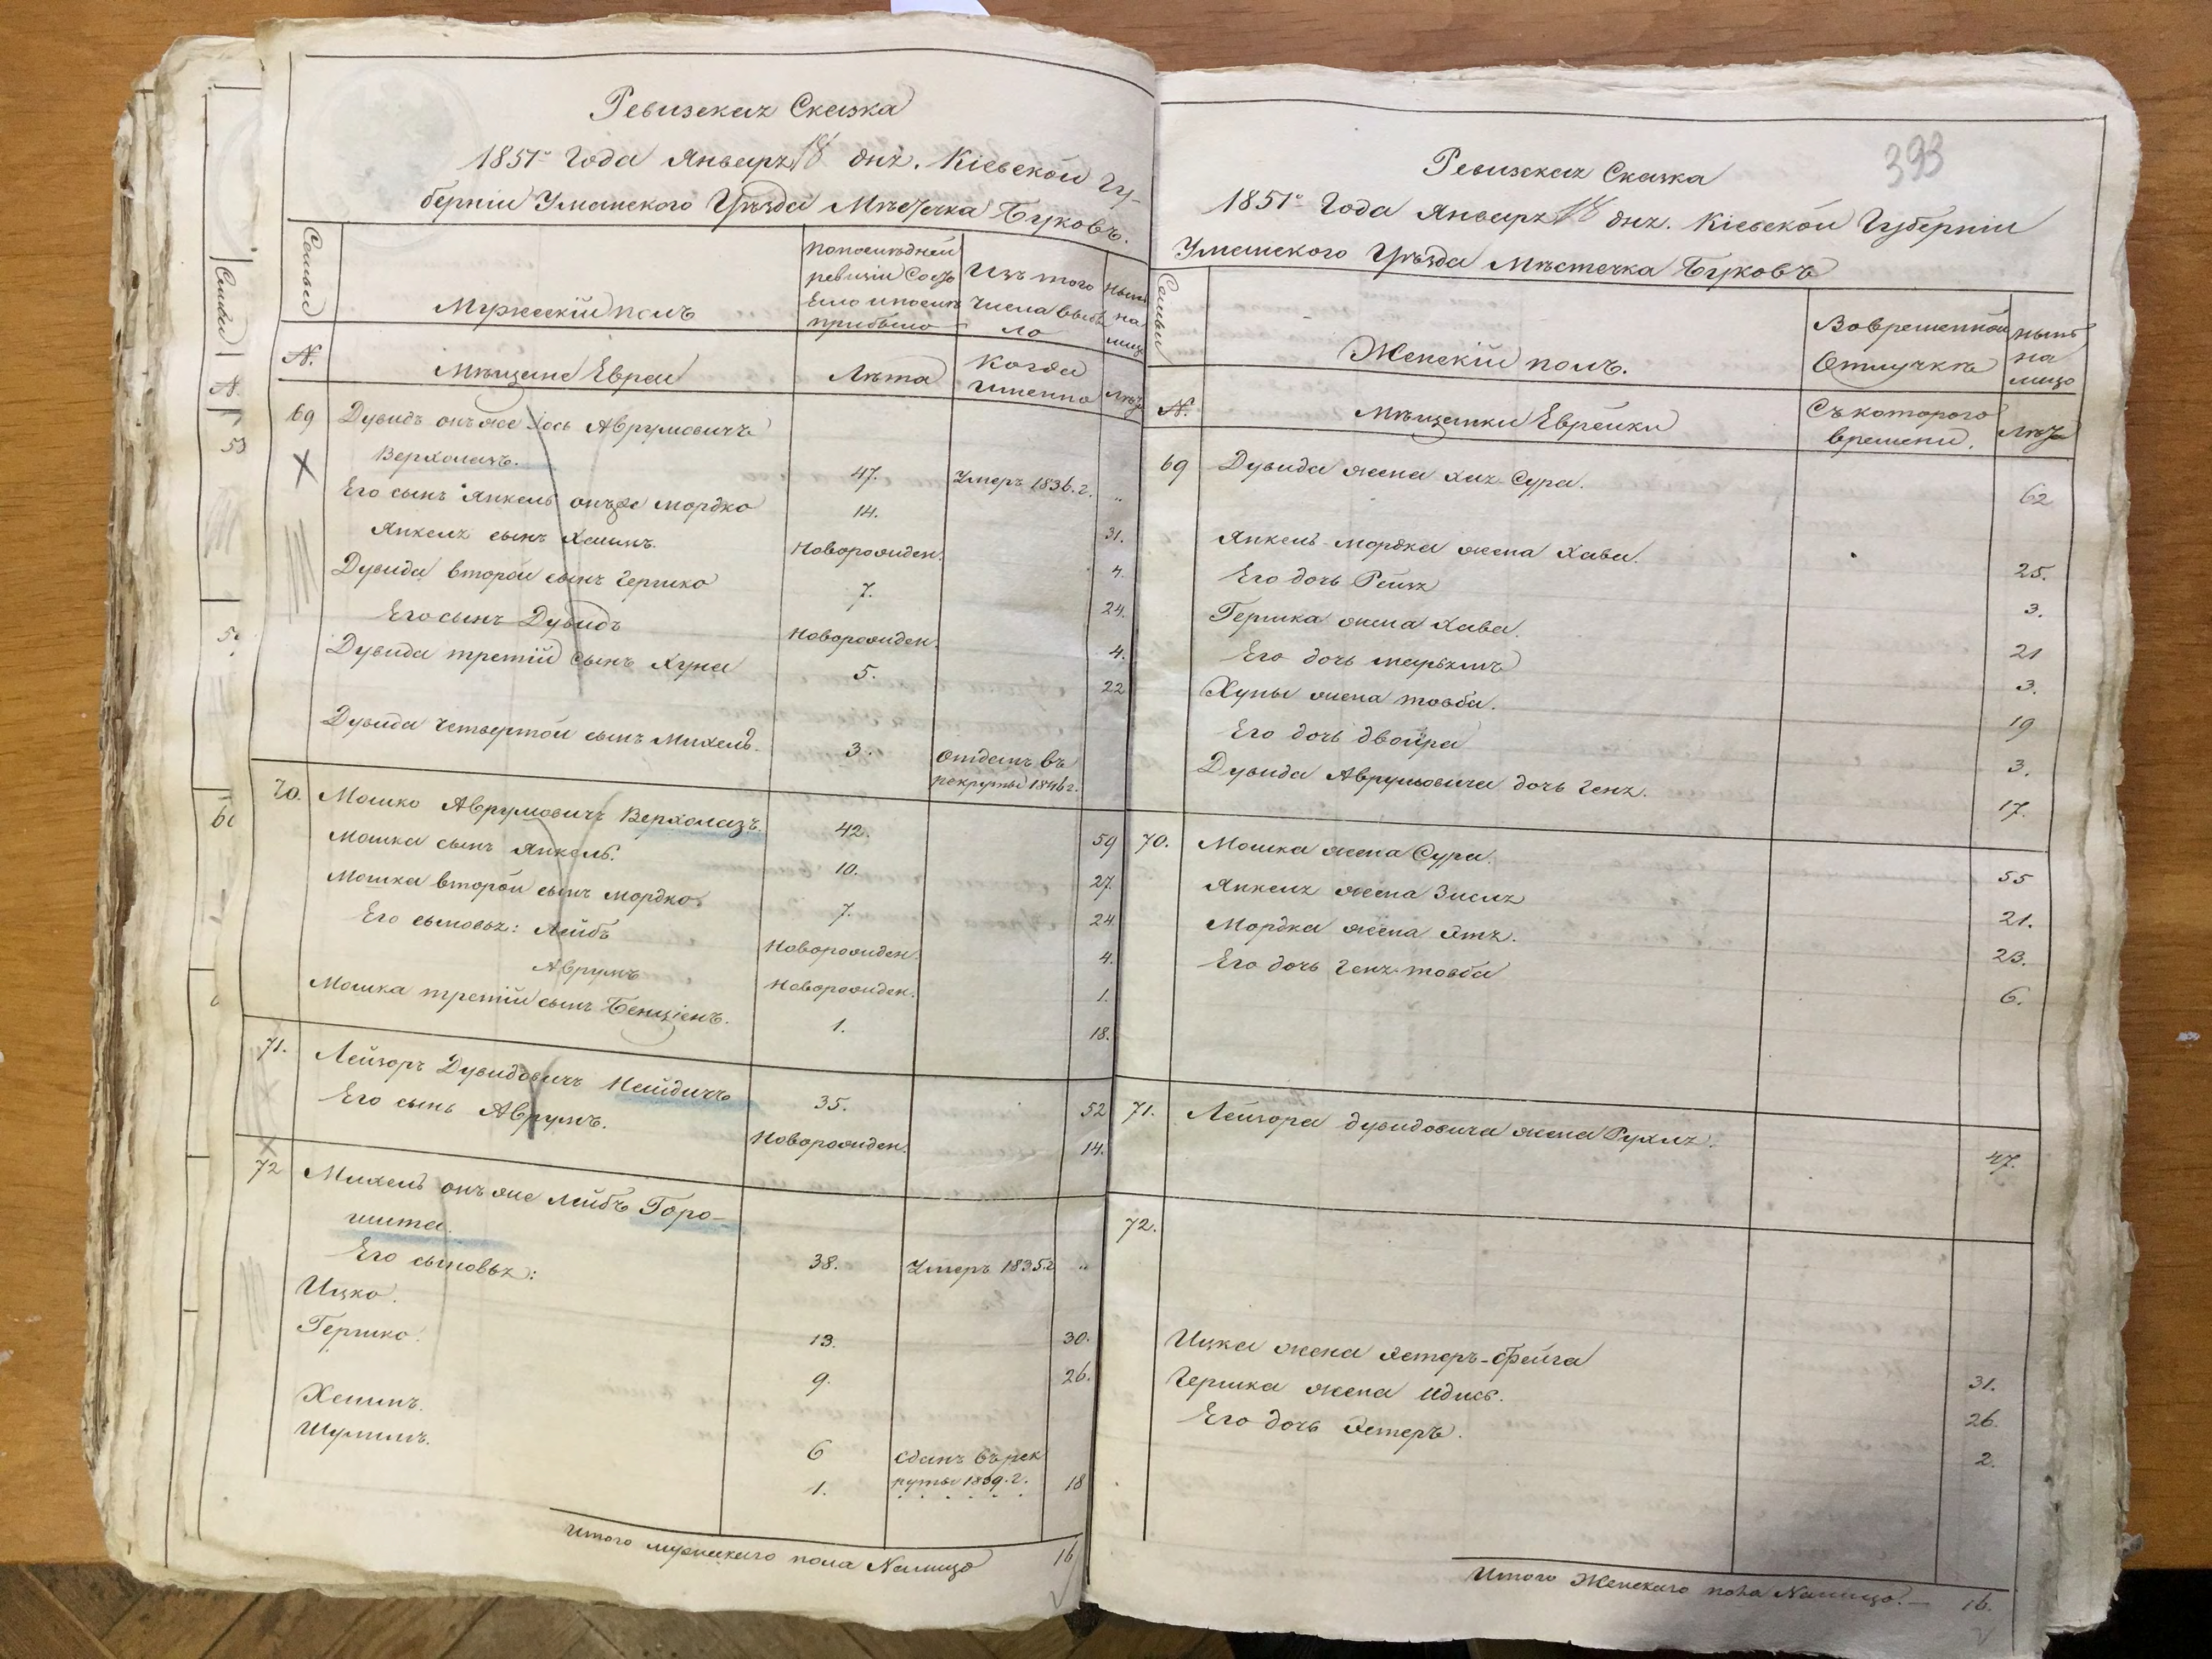 Ревизская Сказка
1851го Года Января 18 дня. Кіевской Гу-
берніи Уманского Уѣзда Мѣстечка Буковъ.
Семьи
Мужескій полъ
По последней
ревизіи Состо
яло и после
прибыло
Изъ того
числа выбы
ло
Ныне
на
лицо
N.
Мѣщане Евреи
Лѣта
Когда
Именно
Лѣта
69
Дувидъ онъ же Іось Аврумовичъ
Верхолазъ.
47.
Умеръ 1836. г.
"
Его сынъ Янкель онъ же Мордко
14.
31.
Янкеля сынъ Хаимъ.
Новорожден.
4.
Дувида второй сынъ Гершко
7.
24.
Его сынъ Дувидъ
Новорожден.
4.
Дувида третій сынъ Хуна
5.
22
Дувида четвертой сынъ Михель.
3.
Отданъ въ
рекруты 1846 г.
70.
Мошко Аврумовичъ Верхолазъ.
42.
59
Мошка сынъ Янкель.
10.
27.
Мошка второй сынъ Мордко.
7.
24
Его сыновья: Лейбъ
Новорожден.
4.
Аврумъ
Новорожден.
1.
Мошка третій сынъ Бенціонъ.
1.
18.
71.
Лейзоръ Дувидовичъ Нейдичъ
35.
52
Его сынъ Аврумъ.
Новорожден.
14.
72
Михель онъ же Лейбъ Горо-
шита.
38.
Умеръ 1835 г.
"
Его сыновья:
Ицко.
13.
30.
Гершко.
9.
26.
Хаимъ.
6
Сданъ въ рек
руты 1839. г.
Шулимъ.
1.
18
Итого мужескаго пола Налицо
16
393
Ревизская Сказка
1851го Года Января 18 дня. Кіевской Губерніи
Уманского Уѣзда Мѣстечка Буковъ
Семьи
Женскій полъ.
Во временной
Отлучкѣ
Нынѣ
на
лицо
N.
Мѣщанки Еврейки
Съ которого
времени.
Лѣта
69
Дувида жена Хая Сура.
62
Янкель-Мордка жена Хава.
25.
Его дочь Рейзя
3.
Гершка жена Хава.
21
Его дочь Марьямъ
3.
Хуны жена Товба.
19
Его дочь Двойра
3.
Дувида Аврумовича дочь Геня.
17.
70.
Мошка жена Сура.
55
Янкеля жена Зисля
21.
Мордка жена Этя.
23.
Его дочь Геня-Товба
6.
71.
Лейзора Дувидовича жена Рухля.
47.
72.
Ицка жена Эстеръ-Фейга
31.
Гершка жена Идись.
26.
Его дочь Эстеръ.
2.
Итого Женскаго пола Налицо. —
16.